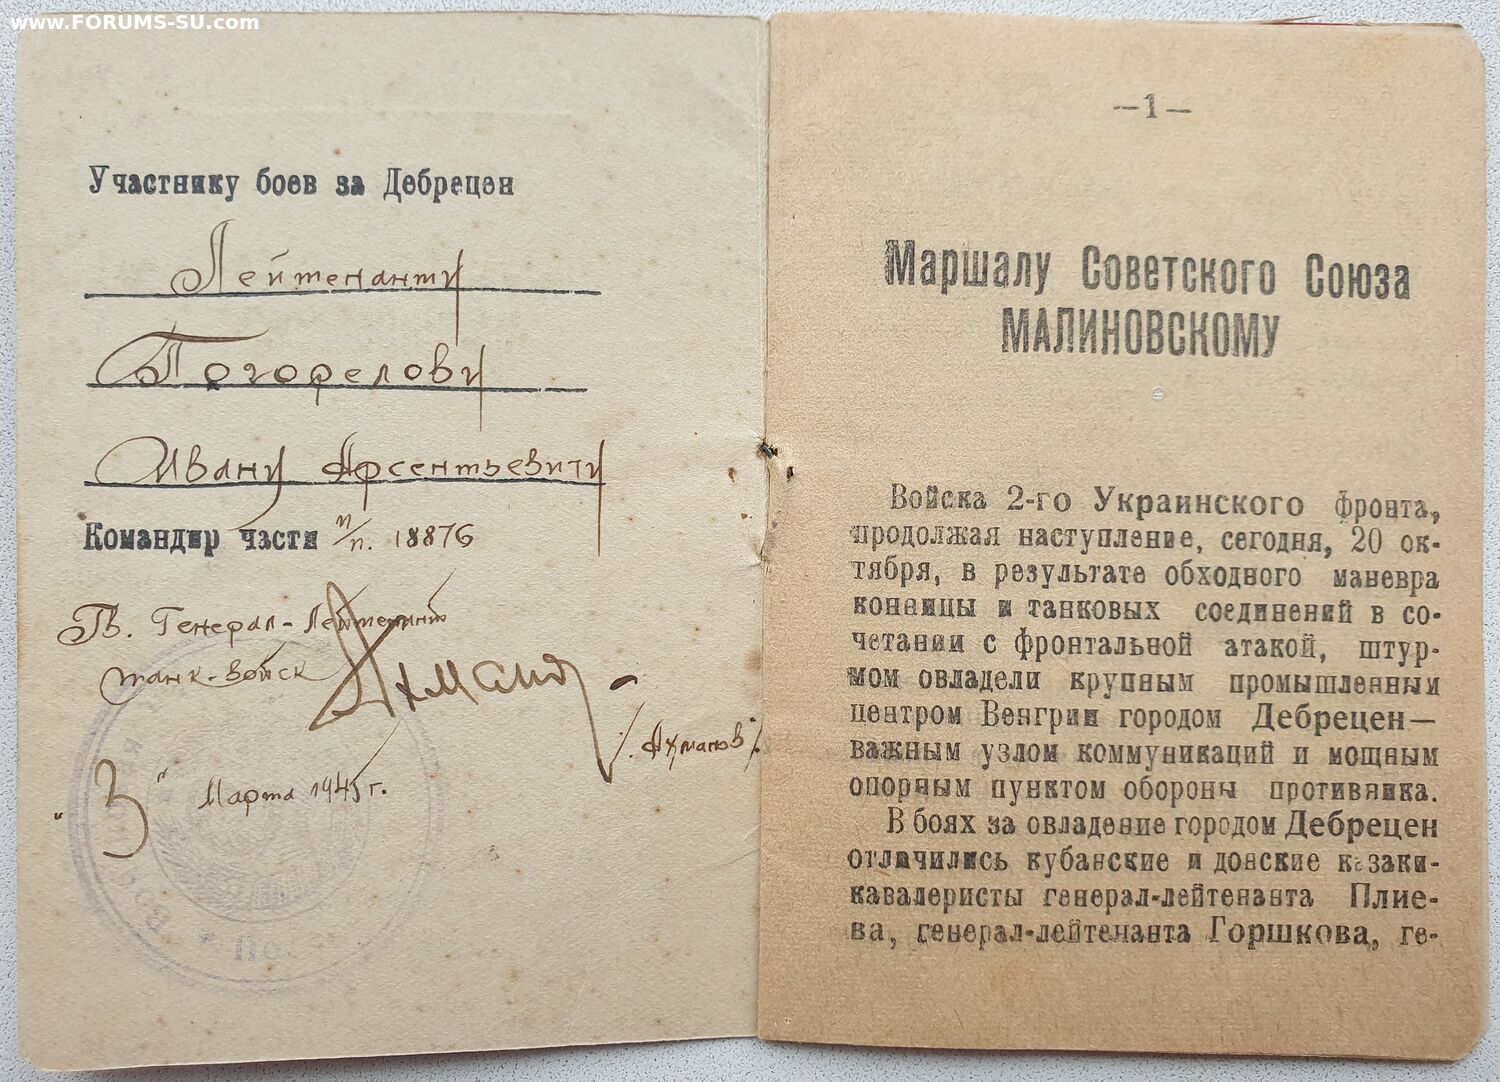 www.FORUMS-SU.com
Участнику боев за Дебрецен
Лейтенанту
Погорелову
Ивану Арсентьевичу
Командир части п/п. 18876
Гв. Генерал-Лейтенант
танк-войск
/Ахманов/.
"3" Марта 1945 г.
—1—
Маршалу Советского Союза
МАЛИНОВСКОМУ
Войска 2-го Украинского фронта,
продолжая наступление, сегодня, 20 ок-
тября, в результате обходного маневра
конницы и танковых соединений в со-
четании с фронтальной атакой, штур-
мом овладели крупным промышленным
центром Венгрии городом Дебрецен—
важным узлом коммуникаций и мощным
опорным пунктом обороны противника.
В боях за овладение городом Дебрецен
отличились кубанские и донские казаки-
кавалеристы генерал-лейтенанта Плие-
ва, генерал-лейтенанта Горшкова, ге-